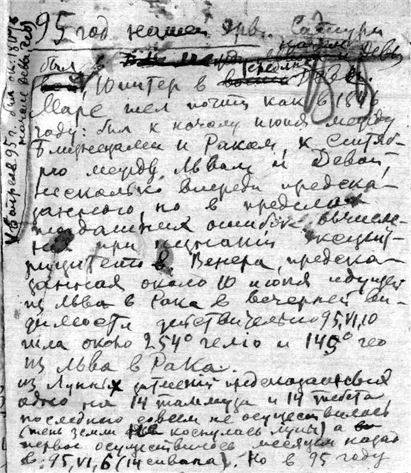 95 год нашей эры. Сатурн
был в начале Девы
Юпитер в середине Девы.
Марс шел почти как в 1846
году: был к началу июня между
Близнецами и Раком, к сентяб-
рю между Львом и Девой,
несколько впереди предска-
занного, но в пределах
тогдашних ошибок вычисле-
ния при незнании эксцен-
трицитетов. Венера, предска-
занная около 10 июня идущей
из Льва в Рака в вечерней ви-
димости действительно 95,VI,10
шла около 254° гелио и 149° гео
из Льва в Рака.
Из Лунных затмений предсказанных
одно на 14 таммуза и 14 тебета
последнего совсем не осуществилось
(тень земли не коснулась луны) а
первое осуществилось месяцем назад
в 95, VI, 6 (14 сивана). Но в 95 году